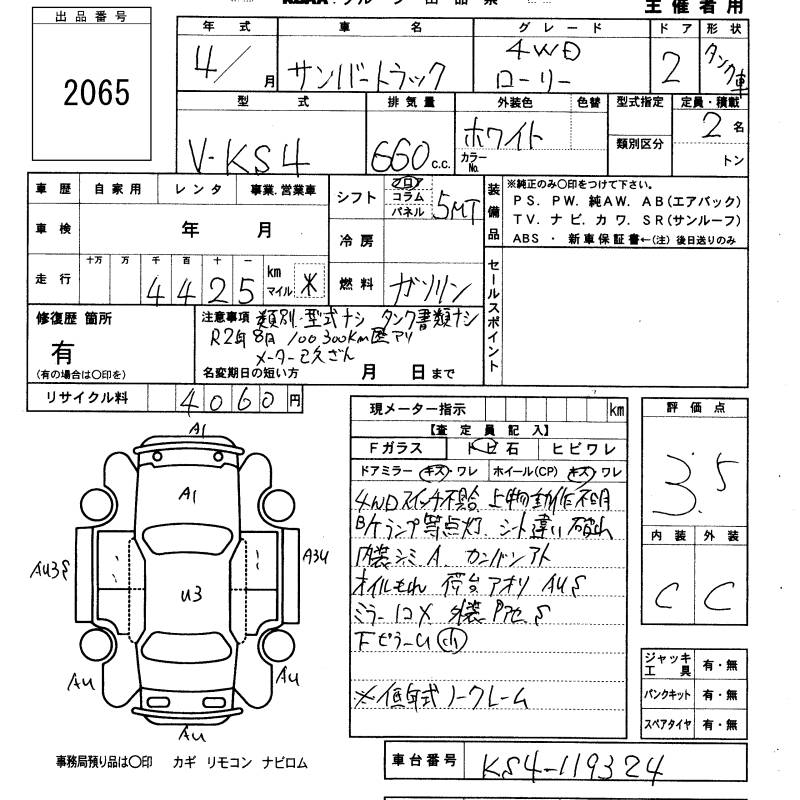 主催者用
出品番号
2065
年式 車名 グレード ドア 形状
4/ 月 サンバートラック 4WD ローリー 2 タンク車
型式 排気量 外装色 色替 型式指定 定員・積載
V-KS4 660 c.c. ホワイト カラーNo. 類別区分 2 名 トン
車歴 自家用 レンタ 事業.営業車
シフト フロア コラム パネル 5MT
装備品
※純正のみ〇印をつけて下さい。
PS. PW. 純AW. AB(エアバック)
TV. ナビ. カワ. SR(サンルーフ)
ABS ・ 新車保証書←(注) 後日送りのみ
車検 年 月
冷房
走行 十万 万 千 百 十 一
4425 km マイル ✳
燃料 ガソリン
セールスポイント
修復歴 箇所
有
(有の場合は〇印を)
注意事項 類別.型式ナシ タンク書類ナシ
R2年8月 100300km歴アリ
メーター改ざん
名変期日の短い方 月 日まで
リサイクル料 4060 円
現メーター指示 km
【査定員記入】
Fガラス トビ石 ヒビワレ
ドアミラー キズ・ワレ ホイール(CP) キズ・ワレ
4WDスイッチ不具合 上物動作不明
B/Kランプ等点灯. シート違い 破れ
内装シミA. カンバンアト
オイルもれ 荷台アオリ AUS
ミラーコメ 外装 S
Fピラー U 小
※低年式ノークレーム
評価点
3.5
内装 外装
C C
A1
A1
AU3S
A3U
U3
AU
AU
AU
ジャッキ工具 有・無
パンクキット 有・無
スペアタイヤ 有・無
事務局預り品は〇印 カギ リモコン ナビロム
車台番号 KS4-119324